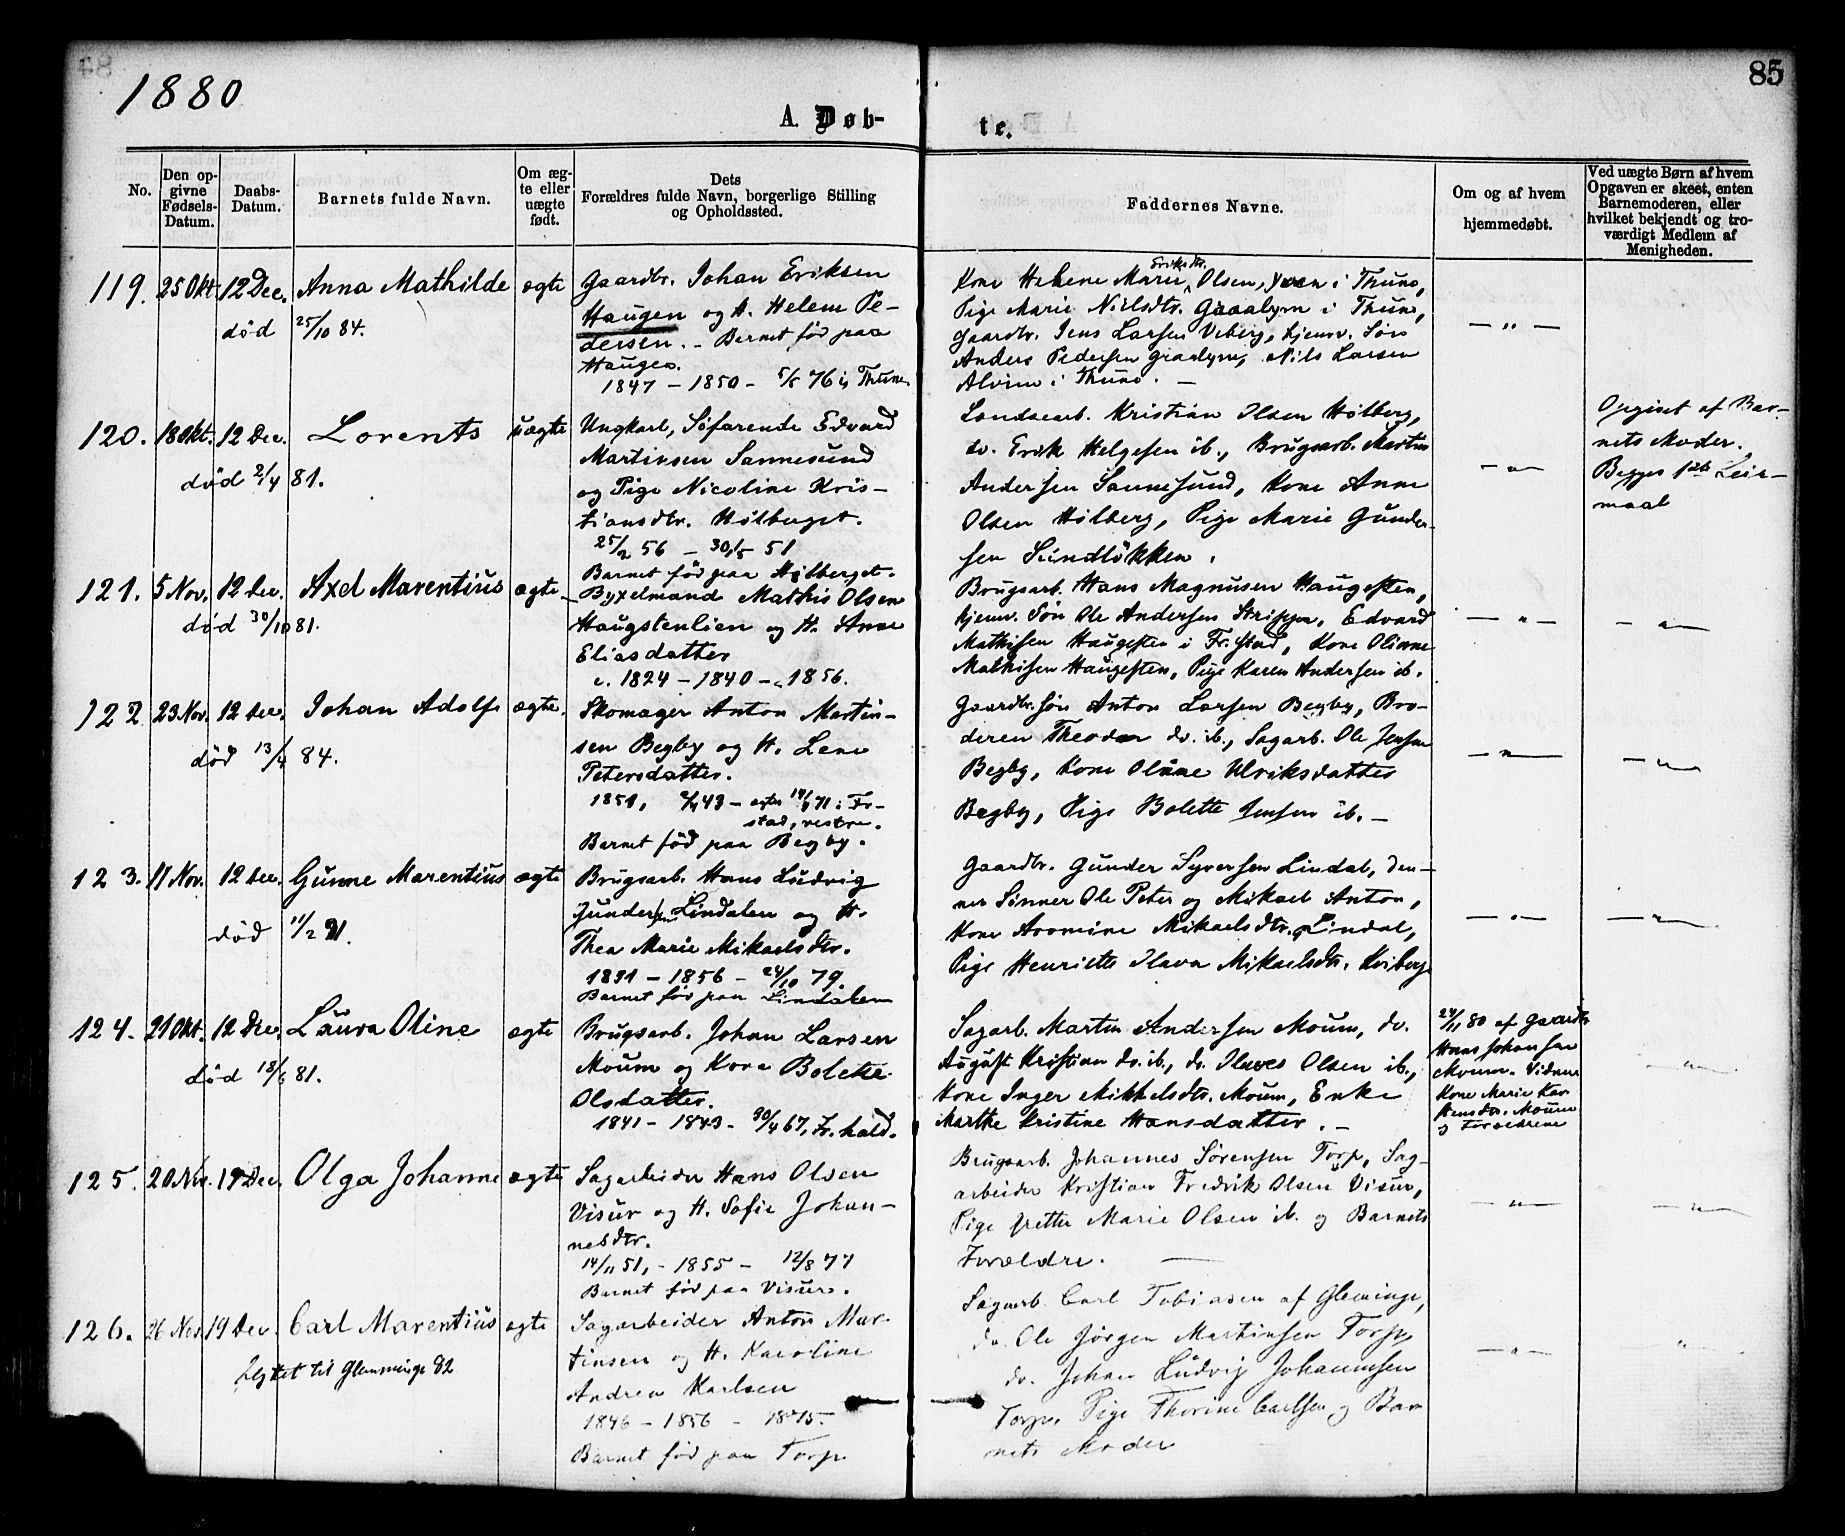 84
1880
85
A. Døb-
te.
No.
Den op-
givne
Fødsels-
Datum.
Daabs-
Datum.
Barnets fulde Navn.
Om æg-
te eller
uægte
født.
Dets
Forældres fulde Navn, borgerlige Stilling
og Opholdssted.
Faddernes Navne.
Om og af hvem
hjemmedøbt.
Ved uægte Børn af hvem
Opgaven er skeet, enten
Barnemoderen, eller
hvilket bekjendt og tro-
værdigt Medlem af
Menigheden.
119. 25 Okt. 12 Dec. Anna Mathilde ægte
død 25/10 84.
Gaardbr. Johan Eriksen
Haugen og H. Helene Pe-
dersen. - Barnet fød paa
Haugen.
1847 - 1850 - 5/5 76 i Thune
Eriksdtr.
Kone Helene Marie Olsen, i Thunø,
Pige Marie Nielsdtr. Graalym i Thunø,
Gaardbr. Jens Larsen Veberg, hjemv. Søn
Anders Pedersen Graalym, Nils Larsen
Alvim i Thunø. -
- " -
120. 18 Okt. 12 Dec. Lorents uægte
død 2/4 81.
Ungkarl, Søfarende Edvard
Martinsen Sannesund
og Pige Nicoline Kris-
tiansdtr. Hølberget.
25/2 56 - 30/5 51
Barnet fød paa Hølberget.
Landsearb. Kristian Olsen Hølberg,
do. Erik Helgesen ib., Brugsarb. Martin
Andersen Sannesund, Kone Anne
Olsen Hølberg, Pige Marie Gunder-
sen Sundløkken.
- " -
Opgivet af Bar-
nets Moder.
Begges 1ste Leier-
maal
121. 5 Nov. 12 Dec. Axel Marentius ægte
død 30/10 81.
Byxelmand Mathis Olsen
Haugstenlien og H. Anne
Eliasdatter
c. 1824 - 1840 - c. 1856.
Brugsarb. Hans Magnusen Haugesten,
hjemv. Søn Ole Andersen Strippa, Edvard
Mathisen Haugesten i Fr.stad, Kone Olianne
Mathisen Haugesten, Pige Karen Andersen ib.
- " -
- " -
122 23 Nov. 12 Dec. Johan Adolf ægte.
død 13/4 84.
Skomager Anton Martin-
sen Begby og H. Lene
Petersdatter.
1851, 43 - 71 i Fr-
stad, vestre.
Barnet fød paa Begby.
Gaardbr.søn Anton Larsen Begby, Bro-
deren Theodor do. ib., Sagarb. Ole Jensen
Begby, Kone Oline Ulriksdatter
Begby, Pige Bolette Jensen ib. -
- " -
- " -
123. 11 Nov. 12 Dec. Gunne Marentius ægte
død 11/2 91.
Brugsarb. Hans Ludvig
Gundersen Lindalen og H.
Thea Marie Mikaelsdtr.
1831 - 1856 - 24/10 79.
Barnet fød paa Lindalen
Gaardbr. Gunder Syversen Lindal, den-
nes Sønner Ole Peter og Mikael Anton,
Kone Mikaelsdtr. Lindal,
Pige Henriette Olava Mikaelsdtr. Kviberg
- " -
- " -
124. 21 Okt. 12 Dec. Laura Oline ægte
død 18/6 81.
Brugsarb. Johan Larsen
Moum og Kone Bolette
Olsdatter.
1841 - 1843 - 30/4 67, Fr.hald.
Sagarb. Martin Andersen Moum, do.
August Kristian do. ib., do. Olaves Olsen ib.,
Kone Inger Mikkelsdtr. Moum, Enke
Marthe Kristine Hansdatter. -
24/11 80 af Gaardbr
Hans Johansen
Moum. Vidner
Kone Marie Kar
stensdtr. Moum
og Forældrene
- " -
125. 20 Nov. 19 Dec. Olga Johanne ægte
Sagarbeider Hans Olsen
Visur og H. Sofie Johan-
nesdtr.
14/11 51, - 1855 - 12/8 77
Barnet fød paa Visur.
Brugsarb. Johannes Sørensen Torp, Sag-
arbeider Kristian Fredrik Olsen Visur,
Pige Grethe Marie Olsen ib. og Barnets
Forældre. -
- " -
- " -
126. 26 Nov. 19 Dec. Carl Marentius ægte
flyttet til Glemminge 82
Sagarbeider Anton Mar-
tinsen og H. Karoline
Andrea Karlsen
1846 - 1856 - 1875.
Barnet fød paa Torp.
Sagarb. Carl Tobiasen af Gleminge,
do. Ole Jørgen Martinsen Torp,
do. Johan Ludvig Johannesen
Torp, Pige Thorine Carlsen og Bar
nets Moder
- " -
"